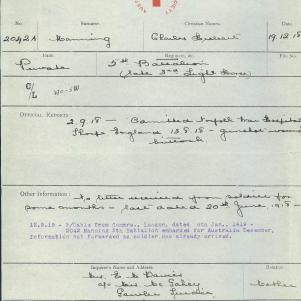 No. Surname. Christian Names. Date.
2042A Manning Charles 19.12.18
Rank. Regiment, &c. File No.
Private 5th Battalion
(late 3rd Light Horse)
C/L W0-5W
OFFICIAL REPORTS:
2.9.18 - Admitted Norfolk War Hospital
Thorpe England 13.8.18 - gunshot wound
buttock
Other Information:
No letter received from soldier for
some months - last dated 20th June 1918 -
13.2.19 - P/Cable from Commrs., London, dated 6th Jan., 1919 -
2042 Manning 5th Battalion embarked for Australia December,
Information not forwarded as soldier has already arrived.
Inquirer's Name and Address. Relation:
Mrs. E. Davies mother
c/o Mrs. Mc